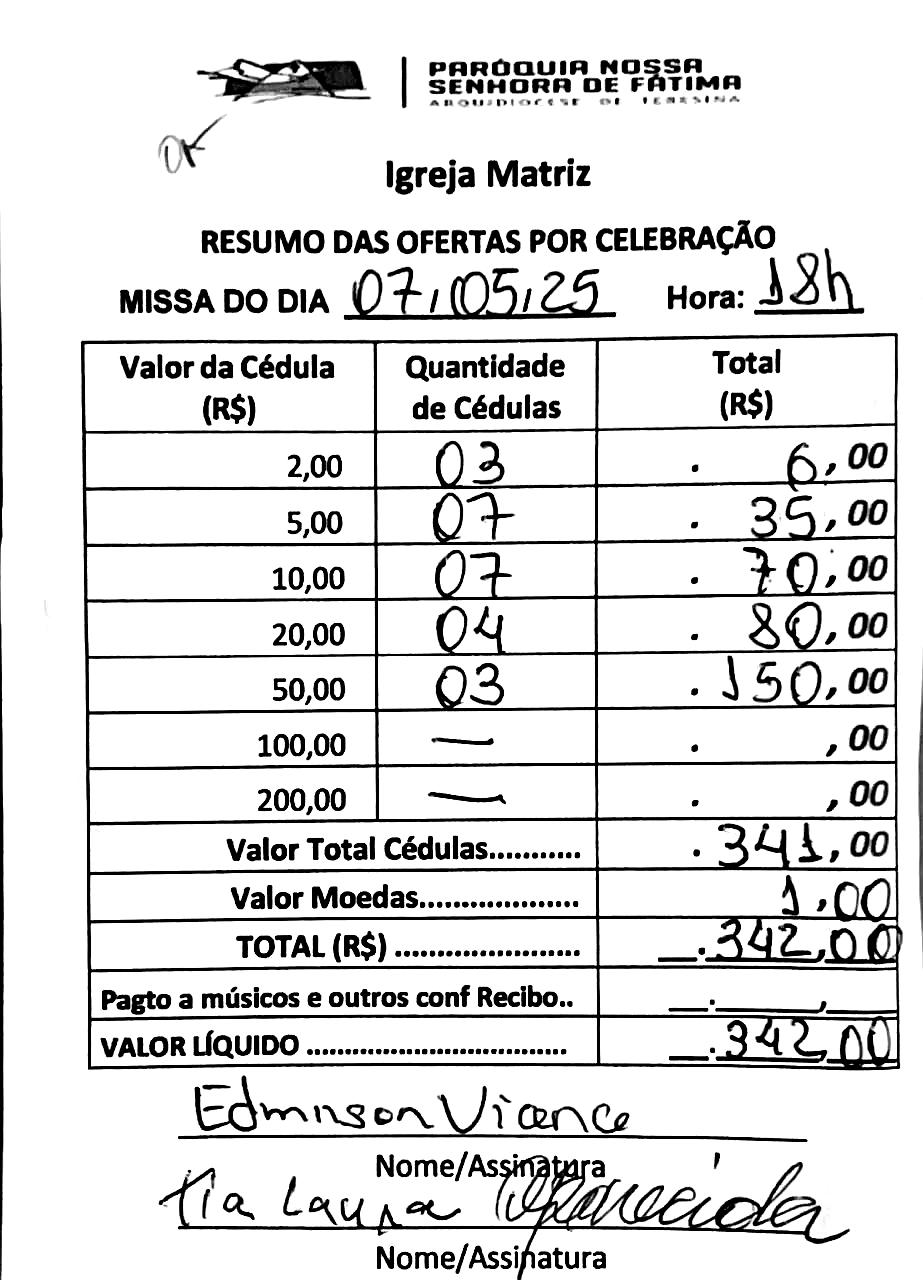 PARÓQUIA NOSSA
SENHORA DE FÁTIMA
ARQUIDIOCESE DE TERESINA
OK
Igreja Matriz
RESUMO DAS OFERTAS POR CELEBRAÇÃO
MISSA DO DIA 07/05/25 Hora: 18h
Valor da Cédula (R$) Quantidade de Cédulas Total (R$)
2,00 03 . 6,00
5,00 07 . 35,00
10,00 07 . 70,00
20,00 04 . 80,00
50,00 03 . 150,00
100,00 — . ,00
200,00 — . ,00
Valor Total Cédulas........... . 341,00
Valor Moedas................... 1,00
TOTAL (R$) ...................... __.342,00
Pagto a músicos e outros conf Recibo.. __.______,____
VALOR LÍQUIDO ................................. __.342,00
Vicence
Nome/Assinatura
Laura Aparecida
Nome/Assinatura